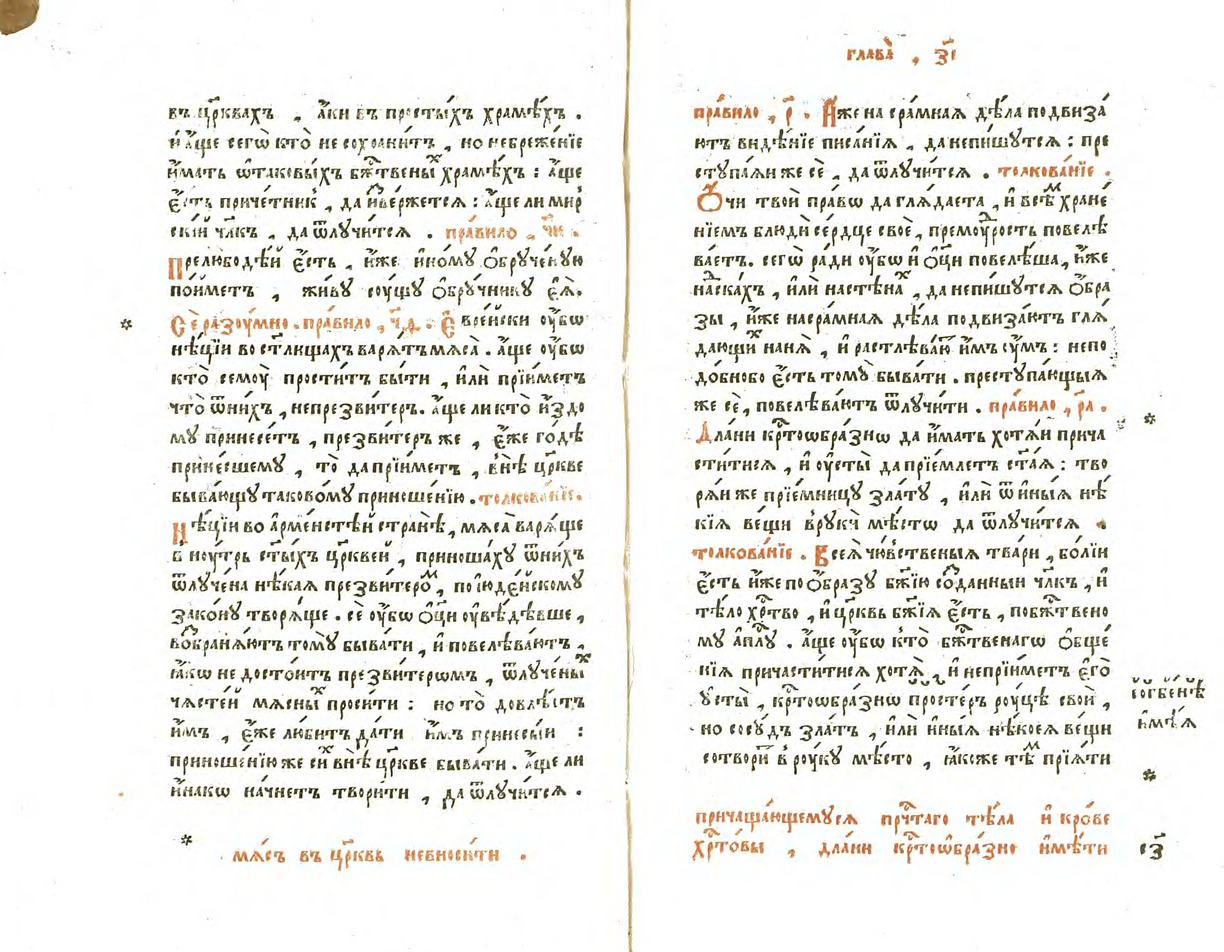 въ цр҃квахъ , а҆́ки въ просты́хъ храмѣ́хъ .
и҆ а҆́ще сегѡ̀ кто̀ не сохрани́тъ , но небреже́нїе
и҆́мать ѡ҆таковы́хъ бж҃твены́ⷯ храмѣ́хъ : а҆́ще
є҆́сть приче́тник̾ , да и҆зве́ржется : а҆́ще ли мир̾
скі́й чл҃къ , да ѿлучи́тся . пра́вило , ч҃и .
Прелюбодѣ́й є҆́сть , и҆́же и҆но́му ѻ҆бруче́ную
по́йметъ , жи́ву сꙋ́щу ѻ҆бру́чнику є҆ѧ̀.
Сѐ разꙋ́мно . пра́вило , ч҃ѳ . Є҆вре́йски ᲂу҆́бѡ
нѣ́цїи во ст҃и́лищахъ варѧ́тъ мѧса̀ . а҆́ще ᲂу҆́бѡ
кто̀ семоу̀ прости́тъ бы́ти , и҆лѝ прїи́метъ
что̀ ѿни́хъ , непрезви́теръ. а҆́ще ли кто̀ и҆здо́
му принесе́тъ , презви́теръ же , є҆́же го́дѣ
прине́сшему , то̀ да прїи́метъ , внѣ̀ цр҃кве
быва́ющу таково́му приноше́нїю . толкова́нїе .
Нѣ́цїи во а҆рме́нстѣй странѣ̀ , мѧса̀ варѧ́ще
в̾ноу́трь ст҃ы́хъ цр҃кве́й , приноша́ху ѿни́хъ
ѿлуче́на нѣ́кая презви́теро́ⷨ , по і҆юде́йскому
зако́ну творѧ́ще . сѐ ᲂу҆́бѡ ѻ҆ц҃ы ᲂу҆вѣ́дѣвше ,
возбранѧ́ютъ тому̀ быва́ти , и҆ повелѣва́ютъ ,
ꙗ҆́кѡ не досто́итъ презви́терѡмъ , ѿлуче́ны́ⷯ
часте́й мѧсны́ⷯ проси́ти : но то̀ довлѣ́етъ
и҆̀мъ , є҆́же лю́битъ да́ти и҆̀мъ принесы́й :
приноше́нїю же се́й внѣ̀ цр҃кве быва́ти . а҆́ще ли
и҆на́кѡ начне́тъ твори́ти , да ѿлучи́тся .
* мѧ́съ въ цр҃квь невноси́ти .
глава̀ , з҃і
пра́вило , р҃ . Я҆́же на сра́мная дѣ́ла подвиза́
ютъ ви́дѣнїе писа́нїя , да непи́шутся : пре
ступа́яи же сѐ , да ѿлучи́тся . толкова́нїе .
Ѻ҆чи твоѝ пра́вѡ да глѧ́даета , и҆ все́ⷨ хране́
нїемъ блюдѝ се́рдце своѐ , прему́дрость повелѣ
ва́етъ. сегѡ̀ ра́ди ᲂу҆́бѡ и҆ ѻ҆ц҃ы повелѣ́ша , и҆́же
надска́хъ , и҆лѝ настѣна́ⷯ , да непи́шутся ѻ҆́бра
зы , и҆́же насра́мная дѣ́ла подвиза́ютъ глѧ́
дающиⷯ нанѧ̀ , и҆ растлѣва́ю и҆́мъ ᲂу҆́мъ : непо
до́бнобо є҆́сть тому̀ быва́ти . преступа́ющыя
же сѐ , повелѣва́ютъ ѿлучи́ти . пра́вило , р҃а .
Дла́ни крⷭ҇тоѡбра́знѡ да и҆́мать хотѧ́и прича
сти́тися , и҆ ᲂу҆сты̀ да прїе́млетъ ст҃а́я : тво
рѧ́и же прїе́мницу зла́ту , и҆лѝ ѿ и҆ны́я нѣ́
кїя ве́щи в̾рукѝ мѣ́стѡ да ѿлучи́тся .
толкова́нїе . Всея̀ чю́вственыя тва́ри , бо́лїи
є҆́сть и҆́же по ѻ҆́бразу бж҃їю со́зданныи чл҃къ , и҆
тѣ́ло хрⷭ҇то́во , и҆ цр҃квь бж҃їя є҆́сть , побж҃твено
му а҆пⷭ҇лу . а҆́ще ᲂу҆́бѡ кто̀ бж҃твенагѡ ѻ҆бще́
нїя причасти́тися хотѧ̀ , и҆ непрїи́метъ є҆го̀
ᲂу҆сты̀ , крⷭ҇тоѡбра́знѡ просте́ръ роу́цѣ своѝ ,
но сосу́дъ зла́тъ , и҆лѝ и҆ны́я нѣ́коея ве́щи
сотвори́въ в̾роу́ку мѣ́сто , ꙗ҆́коже тѣ́ⷨ прїѧ́ти
и҆́мѣя
* причаща́ющемуся прⷱ҇таго тѣ́ла и҆ кро́ве
хрⷭ҇то́вы , дла́ни крⷭ҇тоѡбра́зно и҆мѣ́ти
с҃з